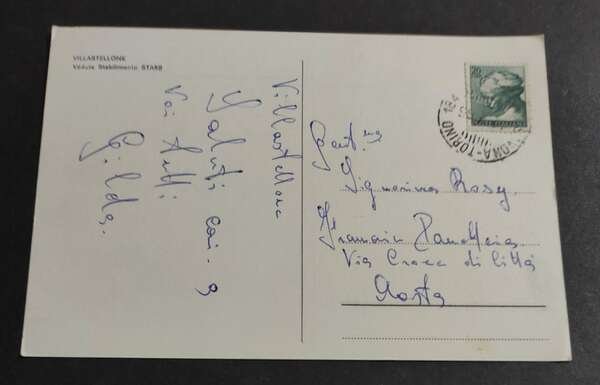 VILLASTELLONE
Veduta Stabilimento STARS
Villastellone
Saluti cari a
voi tutti
Gilda.
20
POSTE ITALIANE
TORINO
Gent.ma
Signorina Rosy
Via Croce di Città
Aosta